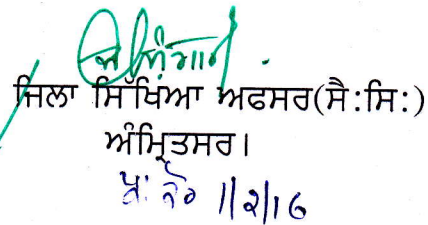 ਜਿਲਾ ਸਿੱਖਿਆ ਅਫਸਰ(ਸੈ:ਸਿ:)
ਅੰਮ੍ਰਿਤਸਰ।
1/2/16